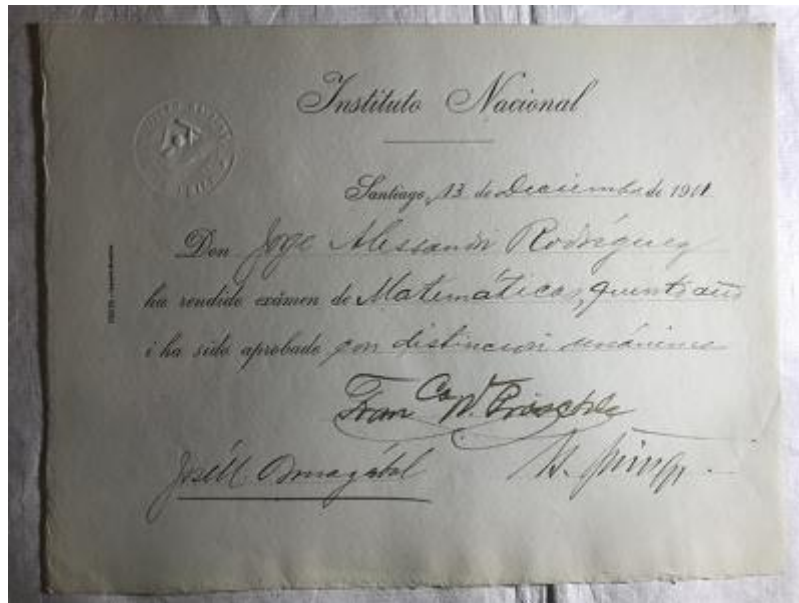 Instituto Nacional
Santiago, 13 de Diciembre de 1911
Don Jorge Alessandri Rodríguez
ha rendido exámen de Matemáticas, quinto año
i ha sido aprobado con distincion unánime
Fran Co W.
José M